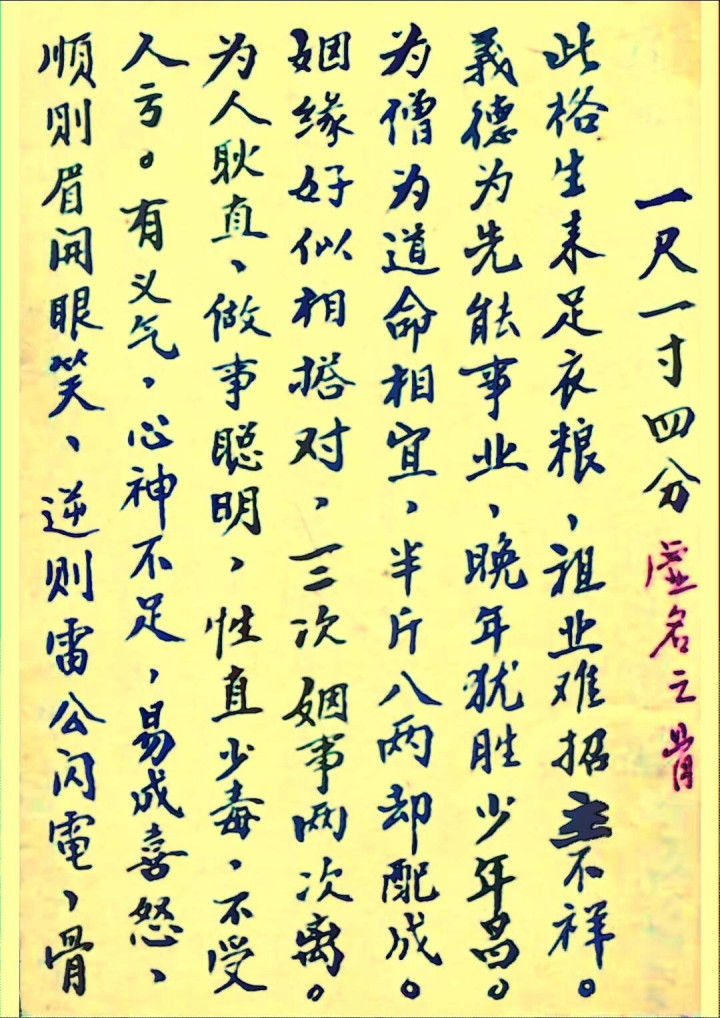 一尺一寸四分 虚名之肯
此格生来足衣粮，祖业难招主不祥。
義德为先能事业、晚年犹胜少年昌。
为僧为道命相宜，半斤八两却配成。
姻缘好似相搭对，三次姻事两次离。
为人耿直、做事聪明，性直少毒，不受
人亏。有义气，心神不足，易成喜怒、
順则眉開眼笑、逆则雷公闪電、骨